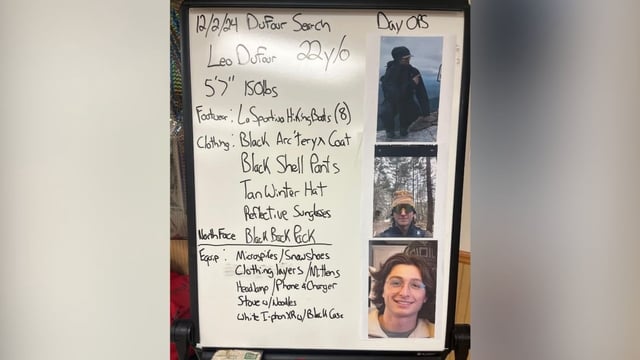 12/2/24 DuFour Search
Day OPS
Leo DuFour 22 y/o
5'7" 150lbs
Footwear: La Sportiva Hiking Boots (8)
Clothing: Black Arc'teryx Coat
Black Shell Pants
Tan Winter Hat
Reflective Sunglasses
North Face Black Back Pack
Equip: Microspikes/Snowshoes
Clothing layers/Mittens
Headlamp/Phone & Charger
Stove w/Noodles
White I-phon XR w/Black Case